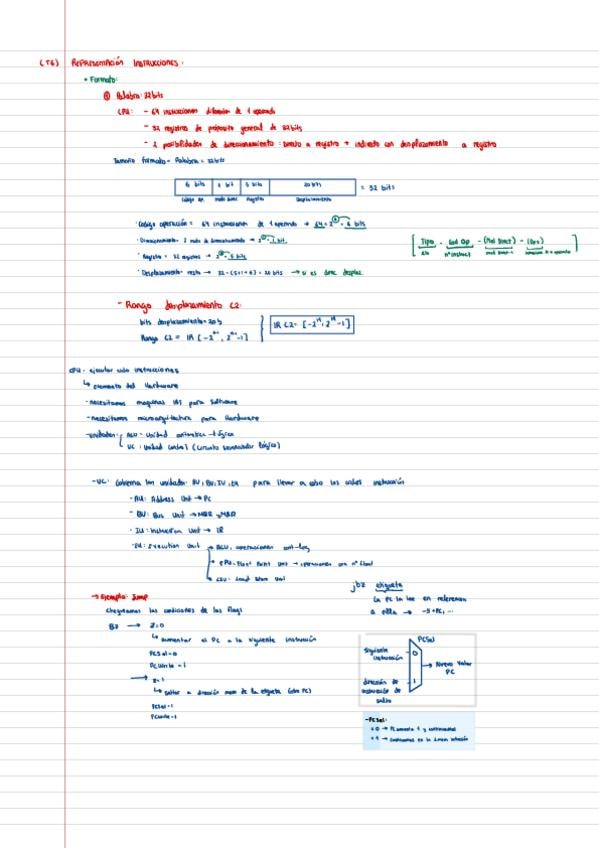 (T6) REPRESENTACIÓN INSTRUCCIONES:
• Formato:
Palabra: 32 bits
CPU: - 64 instrucciones diferentes de 1 operando
- 32 registros de propósito general de 32 bits
- 2 posibilidades de direccionamiento: directo a registro + indirecto con desplazamiento a registro
Tamaño formato = Palabra = 32 bits
6 bits 1 bit 5 bits 20 bits = 32 bits
Código op. modo direcc. Registro Desplazamiento
· Código operación = 64 instrucciones de 1 operando → 64 = 2⁶ = 6 bits
· Direccionamiento = 2 modos de direccionamiento → 2¹ = 1 bit.
· Registro = 32 registros → 2⁵ = 5 bits
· Desplazamiento = resto → 32 - (5+1+6) = 20 bits → si es direc desplaz.
[Tipo - Cod Op - (Mod Direct) - (Ops)]
nº instrucc
- Rango desplazamiento C2:
bits desplazamiento = 20 b
Rango C2 = IR [-2ⁿ⁻¹, 2ⁿ⁻¹-1]
IR C2 = [-2¹⁹, 2¹⁹-1]
CPU = ejecutar instrucciones
↳ elemento del Hardware
- necesitamos máquinas para Software
- necesitamos microarquitectura para Hardware
- unidades: ALU = Unidad aritmético - lógica
UC: Unidad control (Circuito secuenciador lógico)
- UC: Gobierna las unidades AU, BU, IU, EU para llevar a cabo las instrucción
- AU: Address Unit → PC
- BU: Bus Unit → MAR y MBR
- IU: Instruction Unit → IR
- EU: Execution Unit → ALU: operaciones arit-log
→ FPU: Float Point Unit → operaciones con nº float
→ LSU: Load Store Unit
→ Ejemplo: Jump
Chequeamos las condiciones de los flags
BZ → Z=0
↳ aumentar el PC a la siguiente instrucción
PCSel = 0
PCWrite = 1
→ Z=1
↳ saltar a dirección de la etiqueta (otro PC)
PCSel = 1
PCWrite = 1
jbz etiqueta
La PC la lee en referencia
a ella → -5+PC, ...
PCSel
siguiente instrucción 0
→ Nuevo valor PC
dirección de instrucción de salto 1
- PCSel:
= 0 → PC aumenta 1 y continuamos
= 1 →